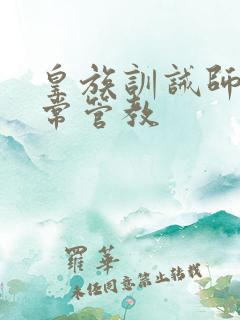 皇族訓誡師
常管教
羅華
未經同意禁止轉載